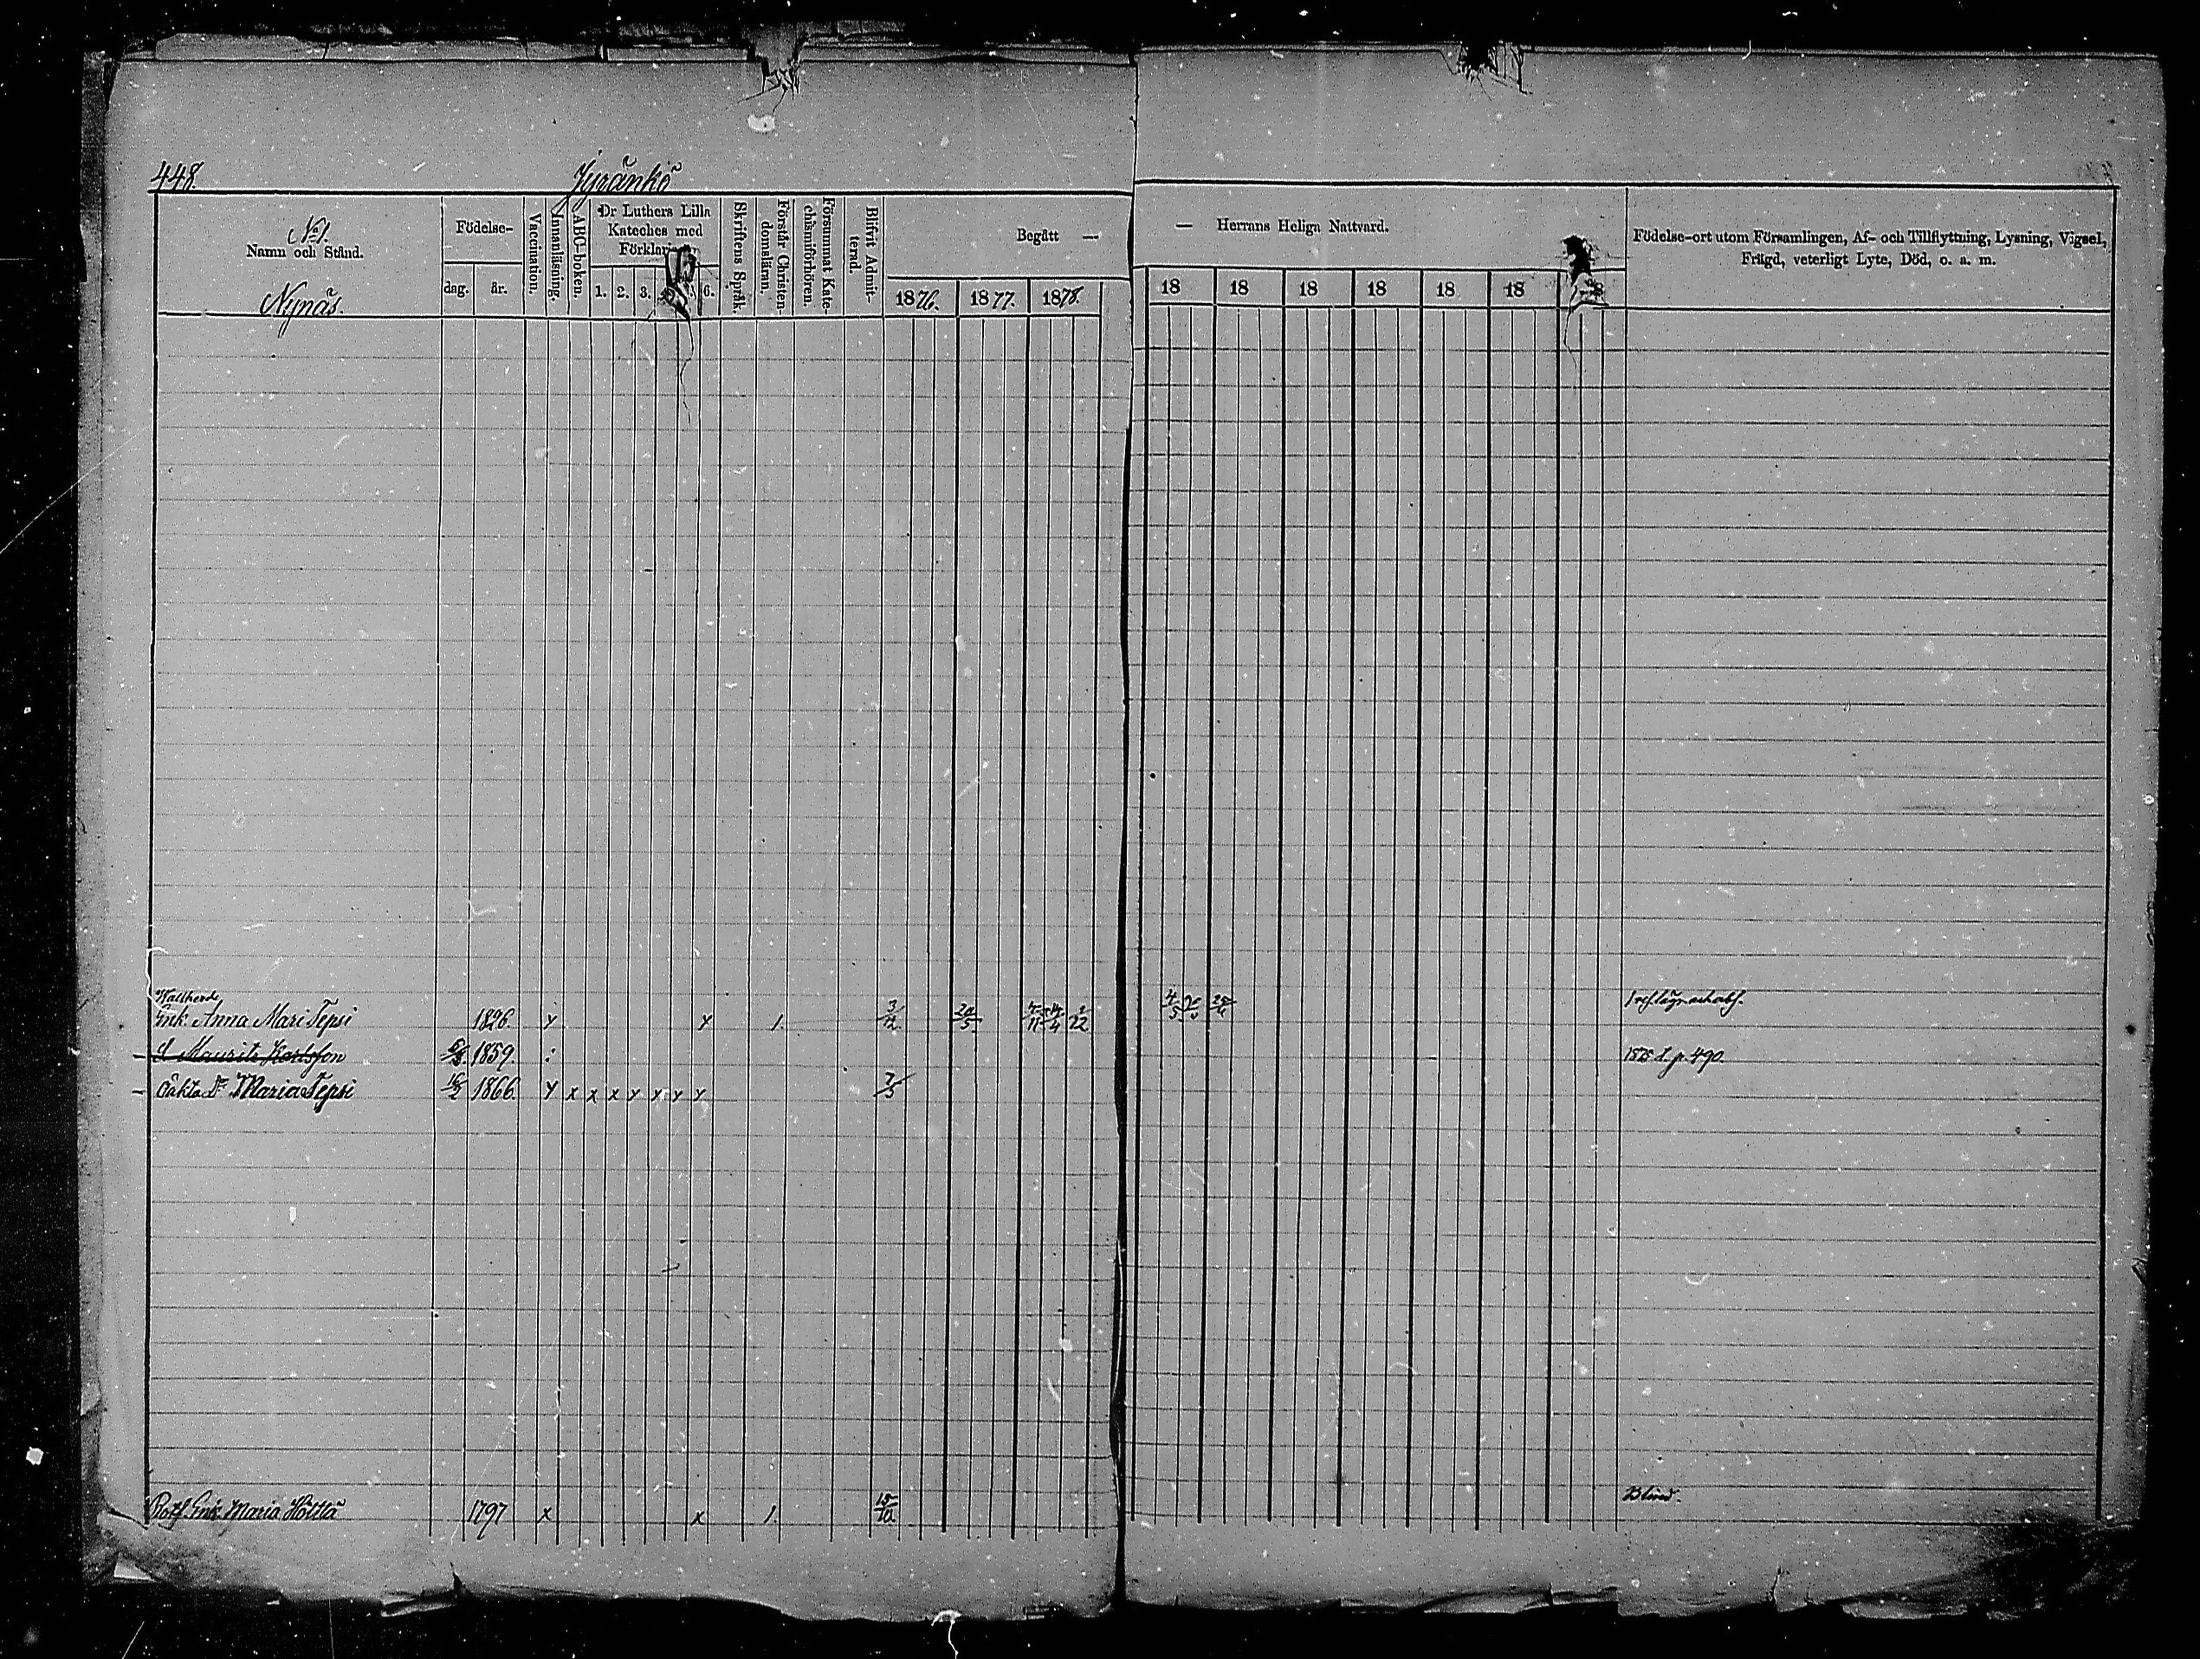 448. Jyränkö
No 1.
Namn och Stånd.
Nynäs.
Födelse-
dag. år.
Vaccination.
Innanläsning.
ABC-boken.
Dr Luthers Lilla
Kateches med
1. 2. 3. 6.
Skriftens Språk.
Förstår Christen-
domsläran.
Försummat Kate-
chismiförhören.
Blifvit Admit-
terad.
Begått — — Herrans Heliga Nattvard.
1876. 1877. 1878. 18 18 18 18 18 18
Födelse-ort utom Församlingen, Af- och Tillflyttning, Lysning, Vigsel,
Frägd, veterligt Lyte, Död, o. a. m.
Enk. Anna Mari Tepsi 1826. 1. 3/12 20/5
Maurits Karlsson 1859. 1875 d. p. 490.
Oäkta Dr Maria Tepsi 16/2 1866. x x x 7/5
Enk. Maria Höltlä 1797 x x 1. 15/10 Blind.